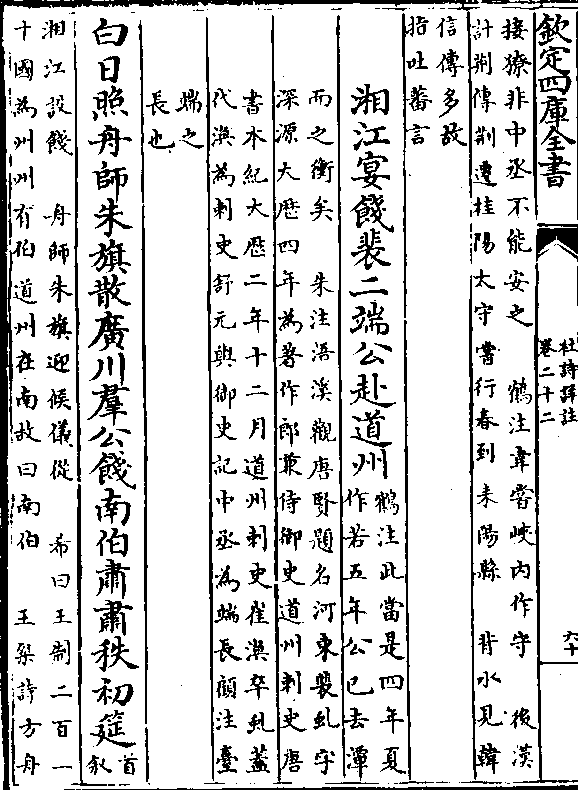 欽定四庫全書
杜詩詳註
卷二十二
六十
接獠非中丞不能安之　鶴注韋嘗峽內作守　後漢
計荆傳荆遷桂陽太守嘗行春到耒陽縣　背水見韓
信傳多故
指吐蕃言
湘江宴餞裴二端公赴道州
鶴注此當是四年夏
作若五年公已去潭
而之衡矣　朱注浯溪觀唐賢題名河東裴虬字
深源大厯四年為著作郎兼侍御史道州刺史唐
書本紀大厯二年十二月道州刺史崔渙卒虬葢
代渙為刺史舒元輿御史記中丞為端長顧注臺
端之
長也
白日照舟師朱旗散廣川羣公餞南伯肅肅秩初筵
首
敘
湘江設餞　舟師朱旗迎候儀從　希曰王制二百一
十國為州州有伯道州在南故曰南伯　王粲詩方舟